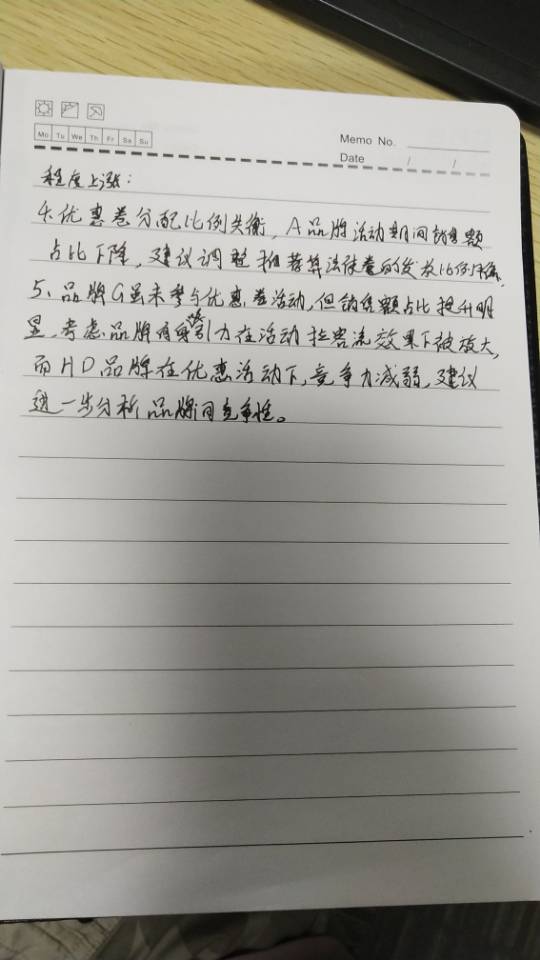 Mo Tu We Th Fr Sa Su
Memo No.
Date / /
程度上涨：
4.优惠卷分配比例失衡，A品牌活动期间销售额
占比下降，建议调整推荐算法使卷的发放比例
5、品牌G虽未参与优惠卷活动，但销售额占比提升明
显，考虑品牌自身吸引力在活动拉客流效果下被放大，
而HD品牌在优惠活动下，竞争力减弱，建议
进一步分析品牌间竞争性。